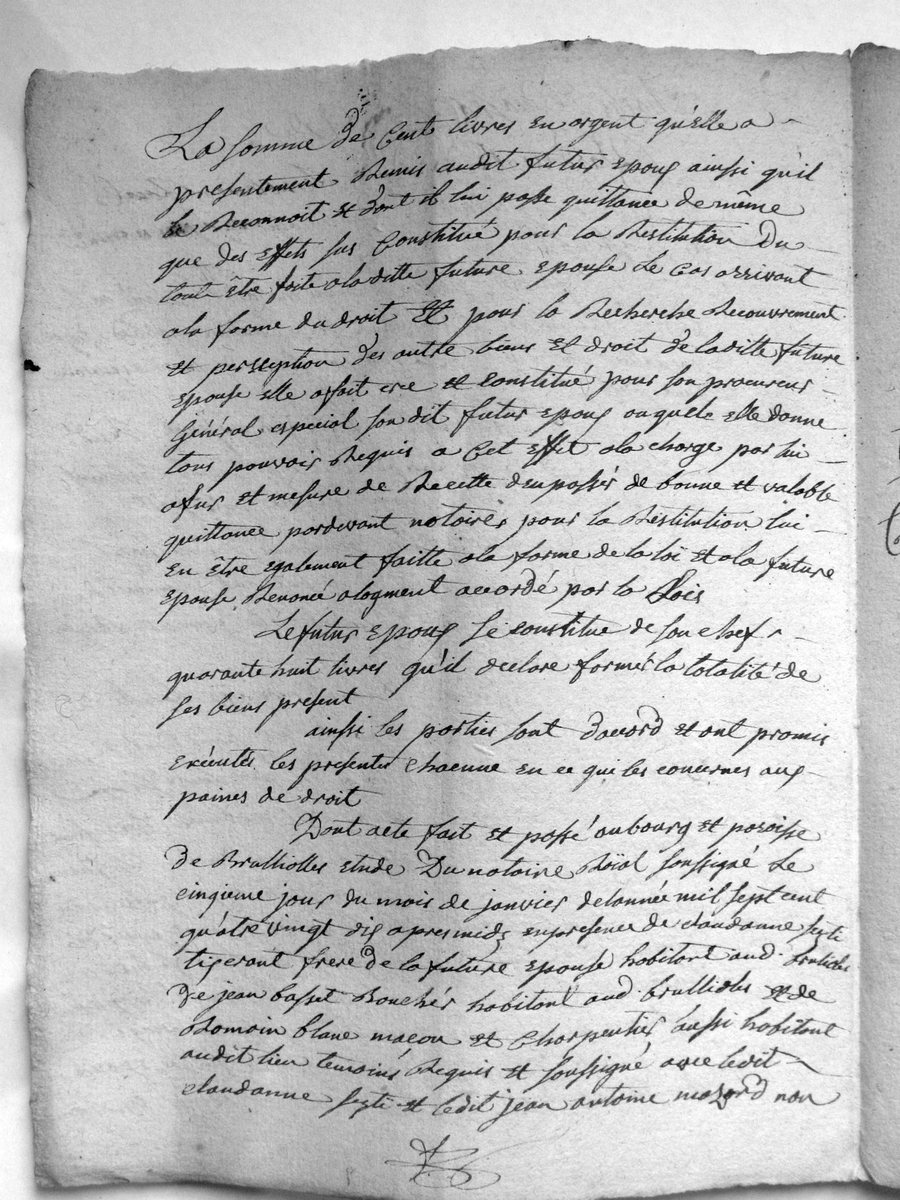 La somme de Cent livres en argent qu'elle a
presentement Remis audit futur Epoux ainsi quil
le Reconnoit et dont il lui passe quittance de même
que des Effets sus Constitué pour la Restitution du
tout être faite aladitte future Epouse Le Cas arrivant
ala forme du droit Et pour la Recherche Recouvrement
et perseption des autre biens et droit de laditte future
Epouse elle afait cre et constitué pour son procureur
Général especial son dit futur Epoux auquele elle donne
tous pouvoir Requis a Cet Effet ala charge par lui
afur et mesure de Recette den passér de bonne et valable
quittance pardevant notaires pour la Restitution lui
En être egalement faitte ala forme de la loi et ala future
Epouse Renoncé alogment accordé par la Lois
Le futur Epoux se constitue de son chef
quarante huit livres qu'il declare formér la totalité de
ses biens present
ainssi les parties sont daccord et ont promis
exécutés les presentes chacunne en ce qui les concernes aux
paines de droit
Dont acte fait et passé au bourg et paroisse
de Brulliolles etude Du notaire Roïal soussigné Le
cinqieme jour du mois de janvier delannée mil sept cent
quâtre vingt dix apres midy en presence de claudanne
tigerant frere de la future épouse habitant aud. brulioles
De jean basset Bouchér habitant aud brullioles et de
Romain blanc macon et Charpentiér aussi habitant
audit lieu temoins Requis et soussigné avec ledit
claudanne et ledit jean antoine mazard non